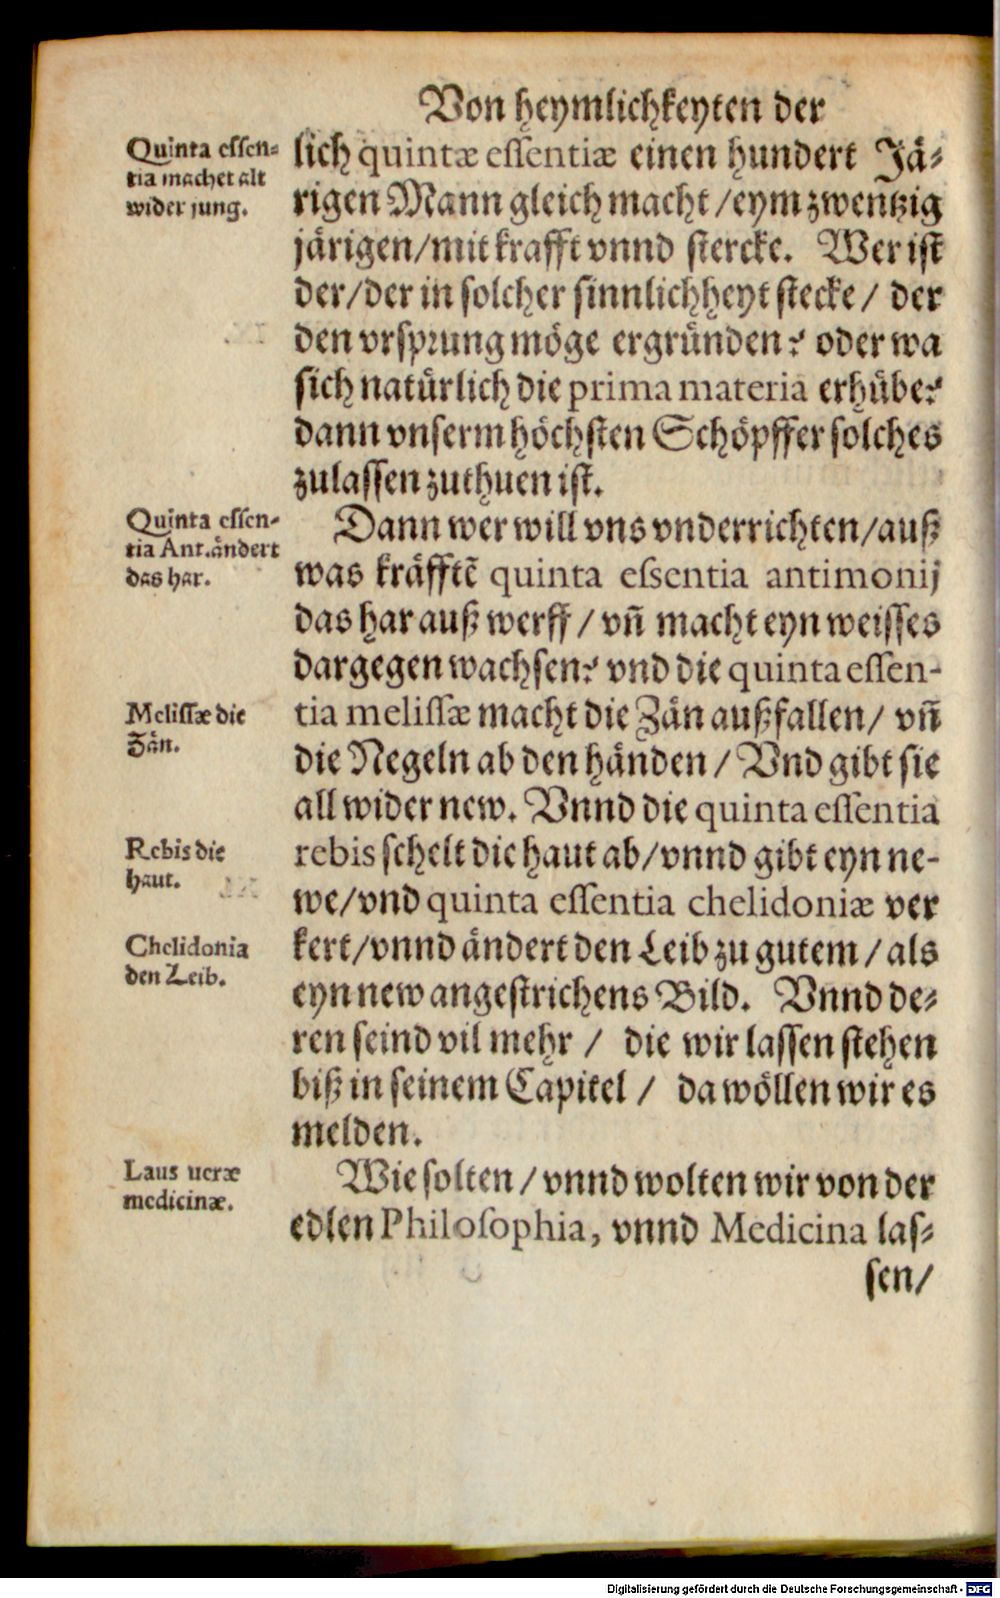 Von heymlichkeyten der
Quinta essen-
tia machet alt
wider jung.
lich quintæ essentiæ einen hundert Jä-
rigen Mann gleich macht / eym zwentzig
järigen / mit krafft vnnd stercke. Wer ist
der / der in solcher sinnlichheyt stecke / der
den vrsprung möge ergründen? oder wa
sich natürlich die prima materia erhübe?
dann vnserm höchsten Schöpffer solches
zulassen zuthuen ist.
Quinta essen-
tia Ant. ändert
das har.
Dann wer will vns vnderrichten / auß
was kräfftẽ quinta essentia antimonij
das har auß werff / vñ macht eyn weisses
dargegen wachsen? vnd die quinta essen-
Melissæ die
Zän.
tia melissæ macht die Zän außfallen / vñ
die Negeln ab den händen / Vnd gibt sie
all wider new. Vnnd die quinta essentia
Rebis die
haut.
rebis schelt die haut ab / vnnd gibt eyn ne-
we / vnd quinta essentia chelidoniæ ver
Chelidonia
den Leib.
kert / vnnd ändert den Leib zu gutem / als
eyn new angestrichens Bild. Vnnd de-
ren seind vil mehr / die wir lassen stehen
biß in seinem Capitel / da wöllen wir es
melden.
Laus ueræ
medicinæ.
Wie solten / vnnd wolten wir von der
edlen Philosophia, vnnd Medicina las-
sen /
Digitalisierung gefördert durch die Deutsche Forschungsgemeinschaft - DFG